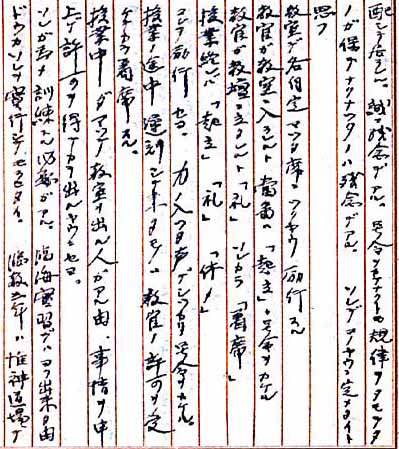 配シテ居ラレル。誠ニ残念デアル。号令ヲカケナイト規律ヲタモツタ
ノガ保テナクナツタノハ残念デアル。ソレデコノヤウニ定メタイト
思フ
教室デ各自定マツタ席ニツクヤウ励行スル
教官ガ教室ニ入ラレルト当番ハ「起立」ト号令ヲカケル
教官ガ教壇ニ立タレルト「礼」ソレカラ「着席」
授業終レバ「起立」「礼」「休メ」
コレヲ励行セヨ。力ノ入ツタ声デシツカリ号令カケル。
授業ノ途中遅刻シテ来タモノハ教官ノ許可ヲ受
ケテカラ着席スル。
授業中ダマツテ教室ヲ出ル人ガアル由、事情ヲ申
上ゲ許可ヲ得テカラ出ルヤウニセヨ。
ソレガ為メ訓練スル必要ガアル。臨海実習デハヨク出来タ由
ドウカソレヲ実行シテモラヒタイ。臨教三年ハ惟神道場デ